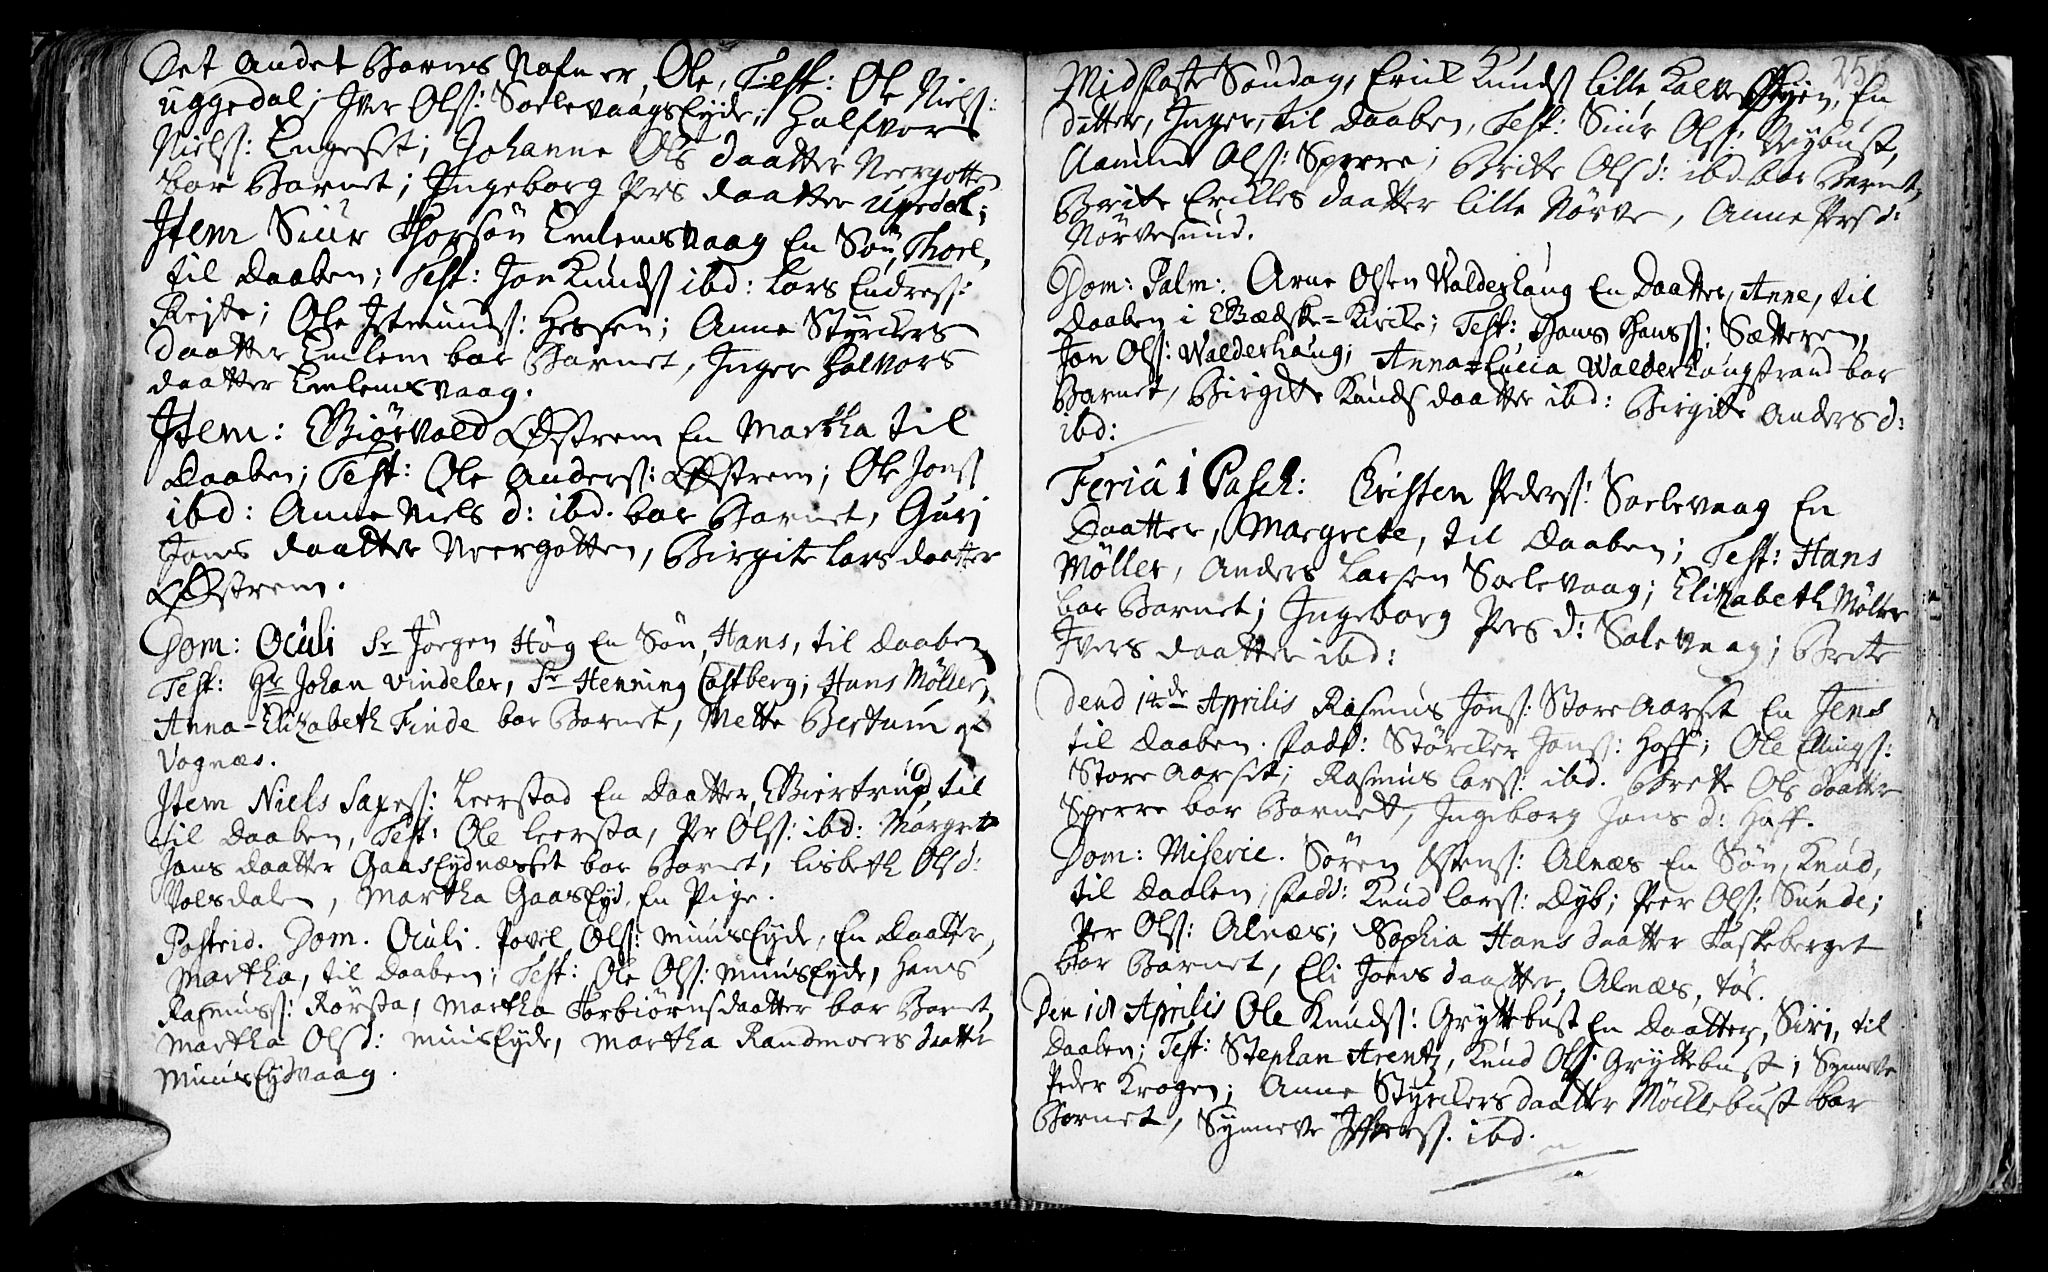 Det andet Barns Nafn er, Ole, Test: Ole Nielss:
uggedal; Iver Olss: Soelevaagseyde; Halfvor
Nielss: Engeset; Johanne Ols daatter Neergotten
bar Barnet; Ingeborg Pers daatter ugedal;
Item Siur Thorsøn Emlemsvaag En Søn, Thore,
til Daaben; Test: Jon Knuds ibd: Lars Endress:
Reite; Ole Istmunds: Hessen; Anne Styrckers
daatter Emlem bar Barnet, Inger Halvors
daatter Emlemsvaag.
Item: Biørvald Østrem En Martha til
Daaben; Test: Ole Anderss: Østrem; Ole Jonss
ibd: Anne Niels d: ibd. bar Barnet, Guri
Jons daatter Neergotten, Birgite Lars daatter
Østrem.
Dom: Oculi Sr Jørgen Høg En Søn, Hans, til Daaben
Test: Hr Johan Vindeler, Sr Henning Castberg; Hans Møller,
Anna-Elizabeth Finde bar Barnet, Mette Bertum
Vognæs.
Item Niels Saxess: Leerstad En Daatter, Giertrud, til
til Daaben, Test: Ole Leersta, Per Olss: ibd: Margrete
Jons Daatter Gaaseydnæsset bar Barnet, Lisbeth Olsd:
Volsdalen, Martha Gaaseyd, En Pige.
Postrid. Dom. Oculi. Povel Olss: Muuseyde, En Daatter,
Martha, til Daaben; Test: Ole Olss: Muuseyde, Hans
Rasmuss: Rørsta, Martha Torbiørnsdaatter bar Barnet,
Martha Olsd: Muuseyde, Martha Randmoers daatter
Muuseydvaag.
25
Midfaste Søndag, Erick Knuds lille Kalve En
datter, Inger, til Daaben, Test: Siur Olss: Nybust,
Aamund Olss: Sperre; Brite Olsd: ibd bar Barnet,
Brite Erickes daatter lille Nørve, Anne Pers d:
Nørvesund.
Dom: Palm. Arne Olsen Walderhaug En Daatter, Anne, til
Daaben i Borgunds-Kircke; Test: Hans Hanss: Sætteren,
Jon Olss: Walderhaug; Anna-Lucia Walderhaugstrand bar
Barnet, Birgitte Knuds daatter ibd: Birgitte Anders d:
ibd:
Feria 1 Pasch: Christen Pederss: Soelevaag En
Daatter, Margrete, til Daaben; Test: Hans
Møller, Anders Larsen Soelevaag; Elizabeth Møller
bar Barnet; Ingeborg Pers d: Solevaag; Brite
Ivers daatter ibd:
Dend 14de Aprilis Rasmus Jonss: Store Aarset En Jens
til Daaben. Fadd: Størcker Jonss: Hoff; Ole Ellingss:
Store Aarset; Rasmus Larss: ibd. Brette Ols daatter
Sperre bar Barnett, Ingeborg Jons d: Hoff.
Dom: Miseric. Søren Stenss: Alnæs En Søn, Knud,
til Daaben, Fadd: Knud Larss: Dyb; Peer Olss: Sunde;
Per Olss: Alnæs; Sophia Hans daatter Kaskeberget
bar Barnet, Eli Joens daatter, Alnæs, tøs.
Den 18 Aprilis Ole Knudss: Gryttebust En Daatter, Siri, til
Daaben; Test: Stephan Arentz, Knud Olss: Gryttebust; Synneve
Peder Krogen; Anne Styrckers daatter Møcklebust bar
Barnet, Synneve ibd.